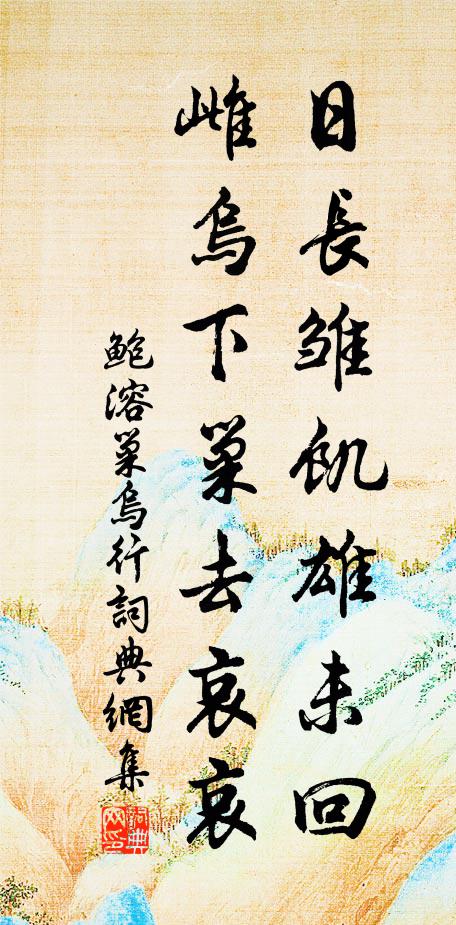 日長雛飢雄未回
雌烏下巢去哀哀
鮑溶巢烏行詞典網集